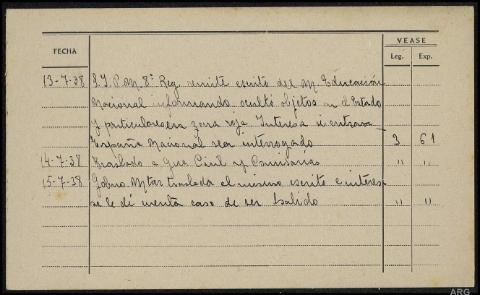 VEASE
FECHA
Leg. Exp.
13-7-38 S.I.P.M. 8ª Reg. remite escrito del M. Educación
Nacional informando ocultó objetos en el Estado
y particulares en zona roja. Interesa si entrara
España Nacional sea interrogado 3 61
14-7-38 Traslado a Gua Civil y Comisarias " "
15-7-38 Gobno Mtar traslada el mismo escrito e interesa
se le dé cuenta caso de ser habido " "
ARG